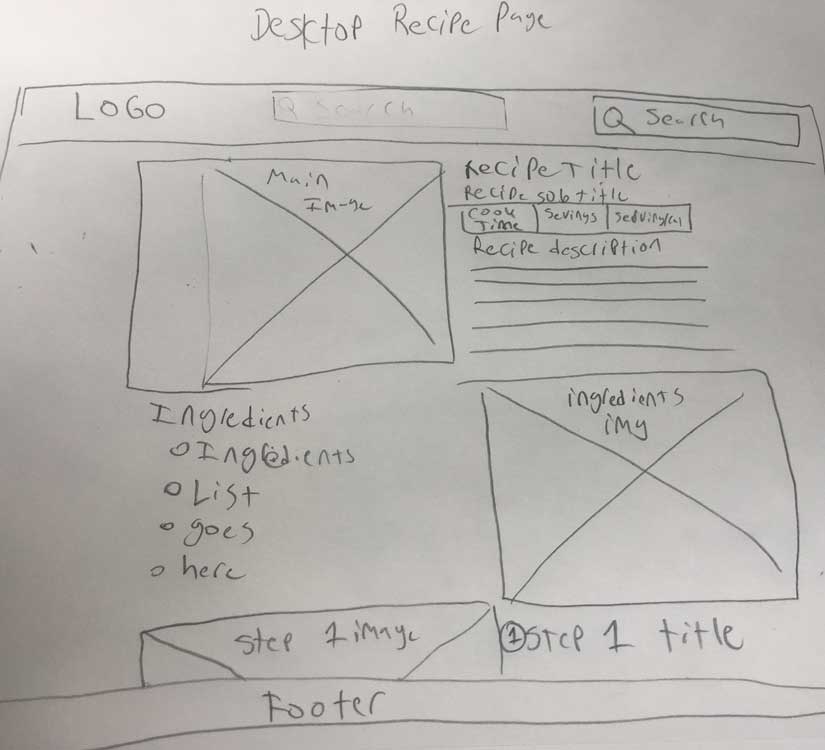 Desktop Recipe Page
LOGO
Search
Search
Main
Image
Recipe Title
Recipe subtitle
Cook
Time
Sevings
Recipe description
Ingredients
Ingredients
List
goes
here
ingredients
img
Step 1 image
1 Step 1 title
Footer